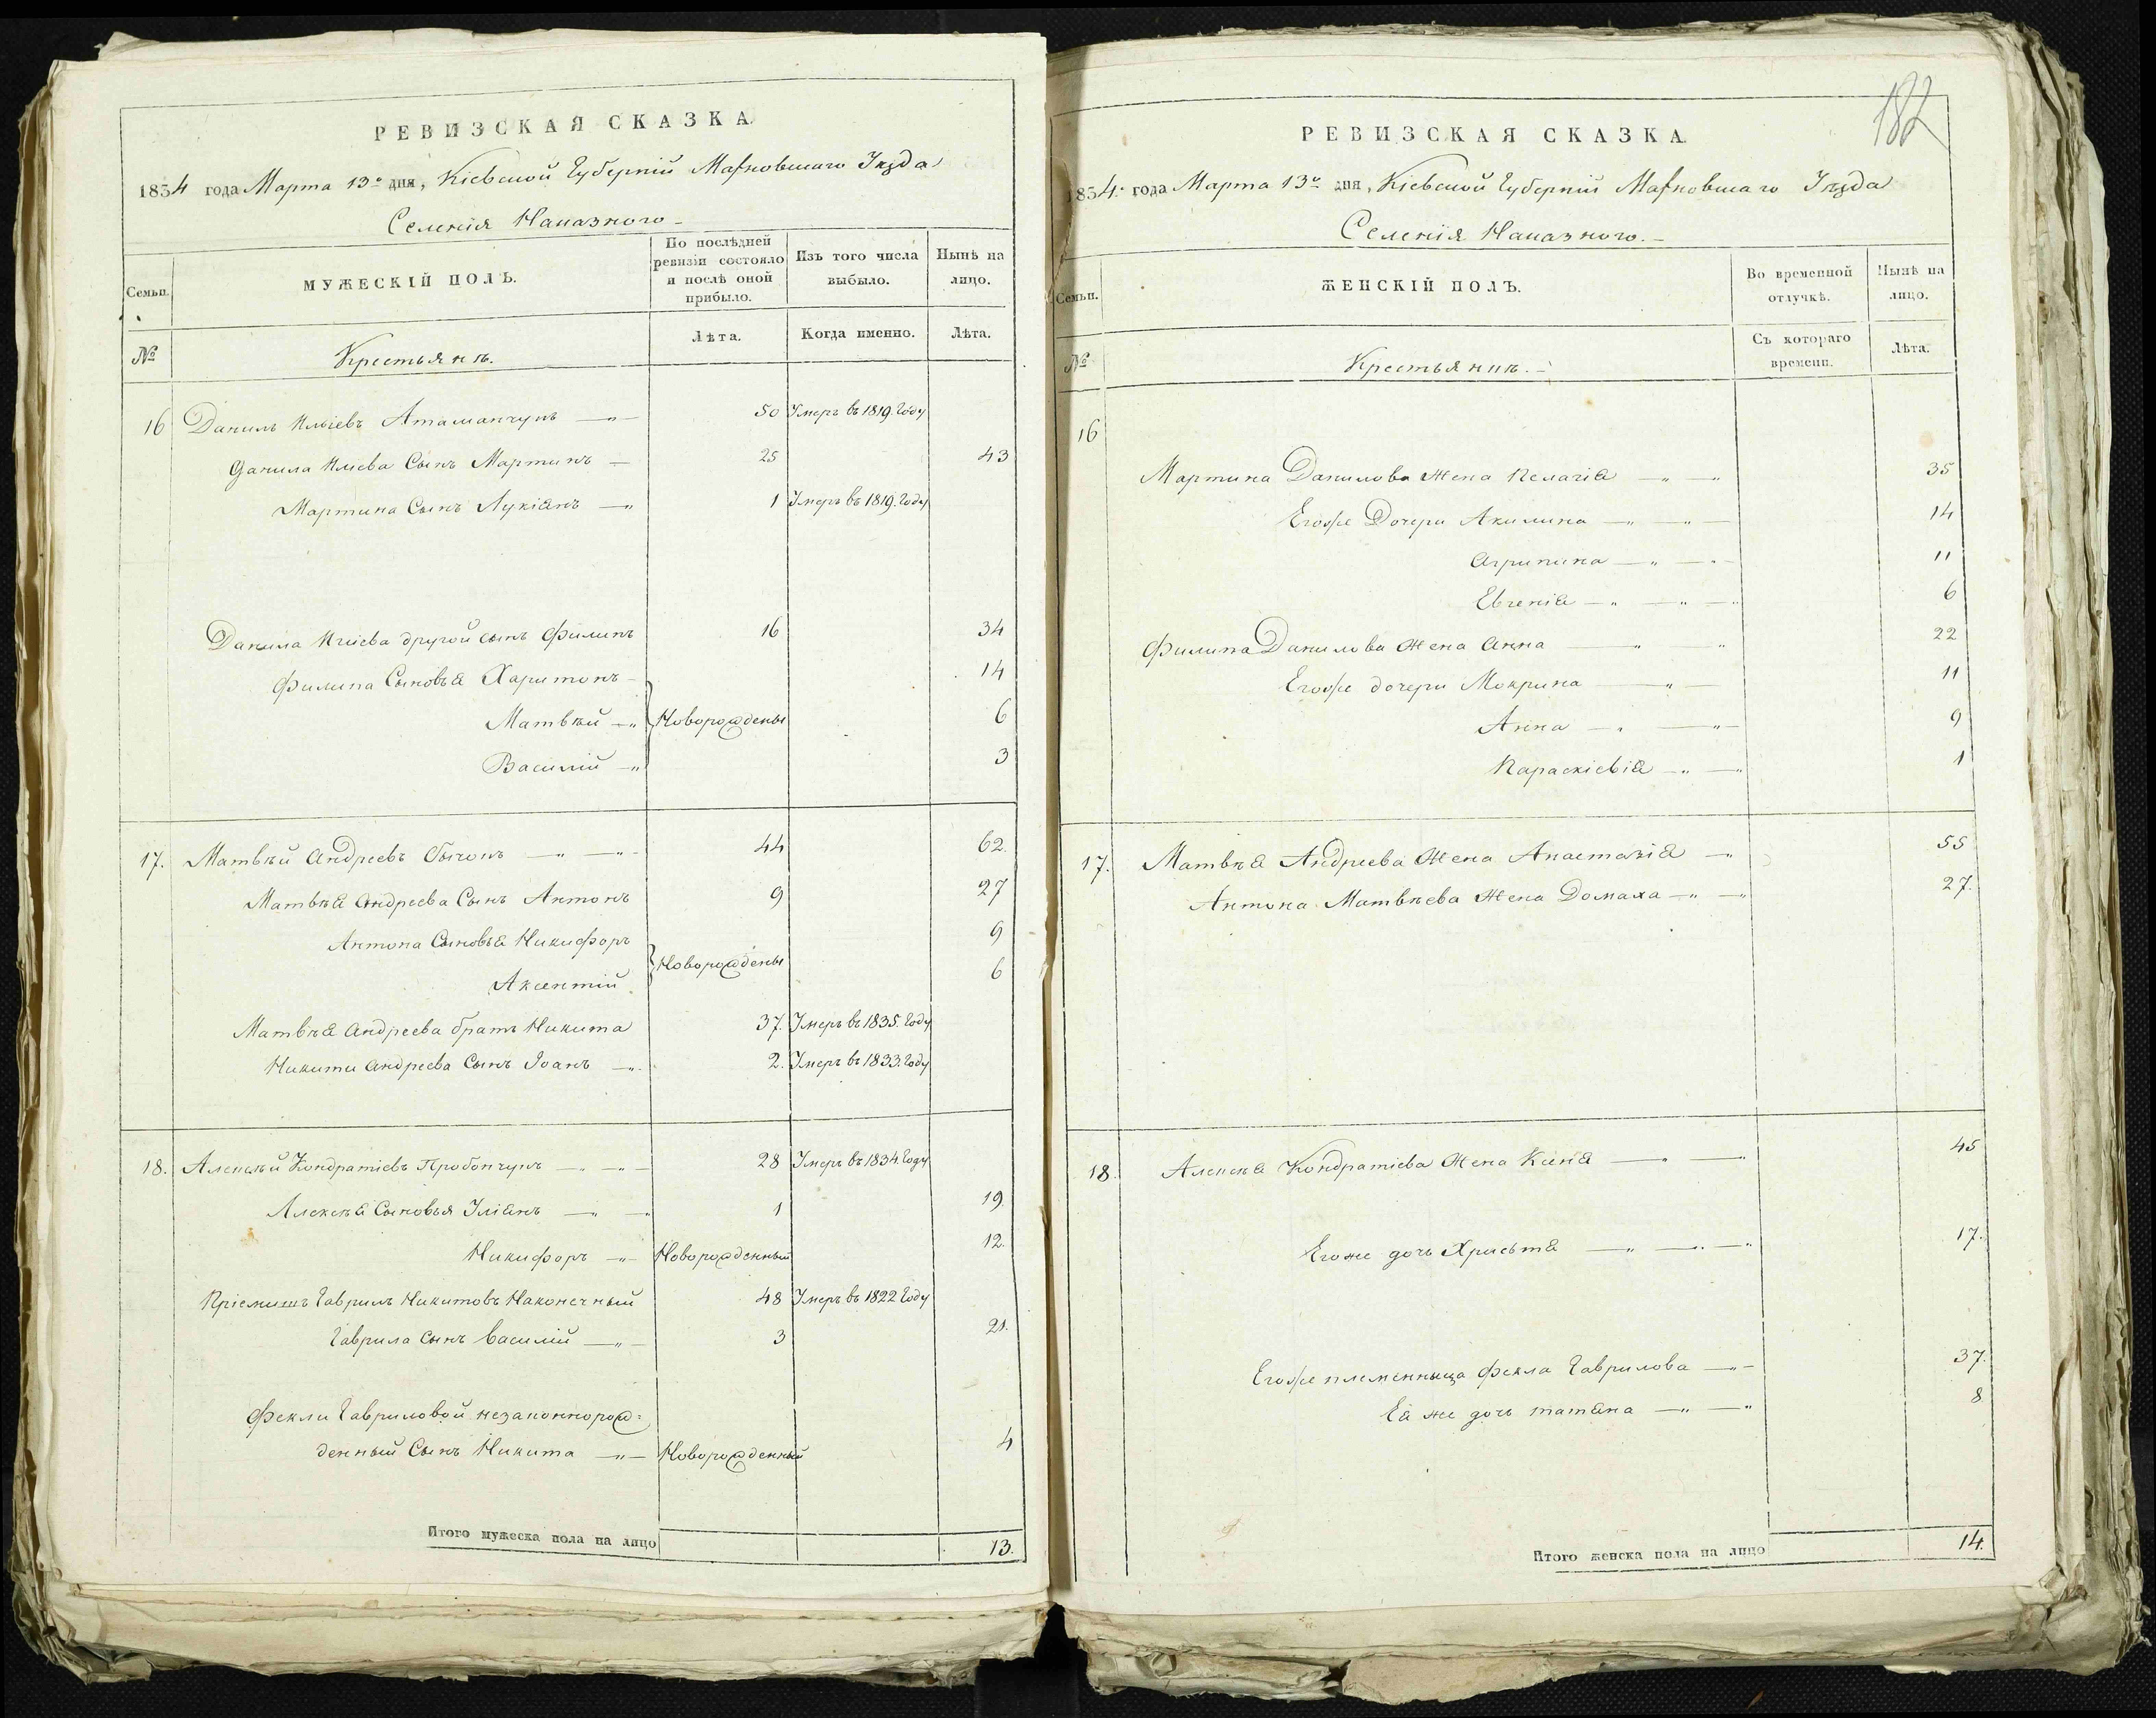 РЕВИЗСКАЯ СКАЗКА
1834 года Марта 13о дня, Кіевской Губерніи Махновскаго Уѣзда
Селенія Наказного
Семьи.
МУЖЕСКІЙ ПОЛЪ.
По послѣдней ревизіи состояло и послѣ оной прибыло.
Изъ того числа выбыло.
Нынѣ на лицо.
№
Крестьянѣ.
Лѣта.
Когда именно.
Лѣта.
16 Данилъ Иліевъ Атаманчукъ 50 Умеръ въ 1819. Году
Данила Илиева Сынъ Мартинъ 25 43
Мартина Сынъ Лукіянъ 1 Умеръ въ 1819. Году
Данила Илиева другой сынъ Филипъ 16 34
Филипа Сыновья Харитонъ 14
Матвѣй Новорождены 6
Василий 3
17. Матвѣй Андреевъ 44 62.
Матвѣя Андреева Сынъ Антонъ 9 27
Антона Сыновья Никифоръ 9
Новорождены
Аксентий 6
Матвѣя Андреева братъ Никита 37. Умеръ въ 1835. Году
Никити Андреева Сынъ Іоанъ 2. Умеръ въ 1833. Году
18. Алексѣй Кондратіевъ 28 Умеръ въ 1834. Году
Алексѣя Сыновья Уліянъ 1 19.
Никифоръ Новорожденный 12.
Пріемишъ Гаврилъ Никитовъ Наконечный 48 Умеръ въ 1822 Году
Гаврила Сынъ Василий 3 21.
Фекли Гавриловой незаконнорож-
денный Сынъ Никита Новорожденный 4
Итого мужеска пола на лицо 13.
182
РЕВИЗСКАЯ СКАЗКА
1834. года Марта 13о дня, Кіевской Губерніи Махновскаго Уѣзда
Селенія Наказного.
Семьи.
ЖЕНСКІЙ ПОЛЪ.
Во временной отлучкѣ.
Нынѣ на лицо.
№
Крестьянкѣ.
Съ котораго времени.
Лѣта.
16
Мартина Данилова Жена Пелагія 35
Егоже Дочери Акилина 14
Агрипина 11
Евгенія 6
Филипа Данилова Жена Анна 22
Егоже дочери Мокрина 11
Анна 9
Параскіевія 1
17. Матвѣя Андреева Жена Анастазія 55
Антона Матвѣева Жена Домаха 27.
18. Алексѣя Кондратіева Жена Ксеня 45
Егоже дочь Христя 17.
Егоже племенныца Фекла Гаврилова 37.
Ея же дочь татяна 8
Итого женска пола на лицо 14.